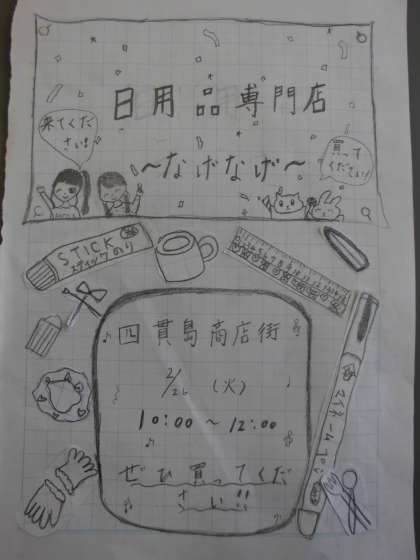 日用品専門店
来てくだ
さい!!
～なげなげ～
買って
ください!!
STICK
スティックのり
四貫島商店街
2/26 (火)
10:00～12:00
ぜひ買ってくだ
さい!!